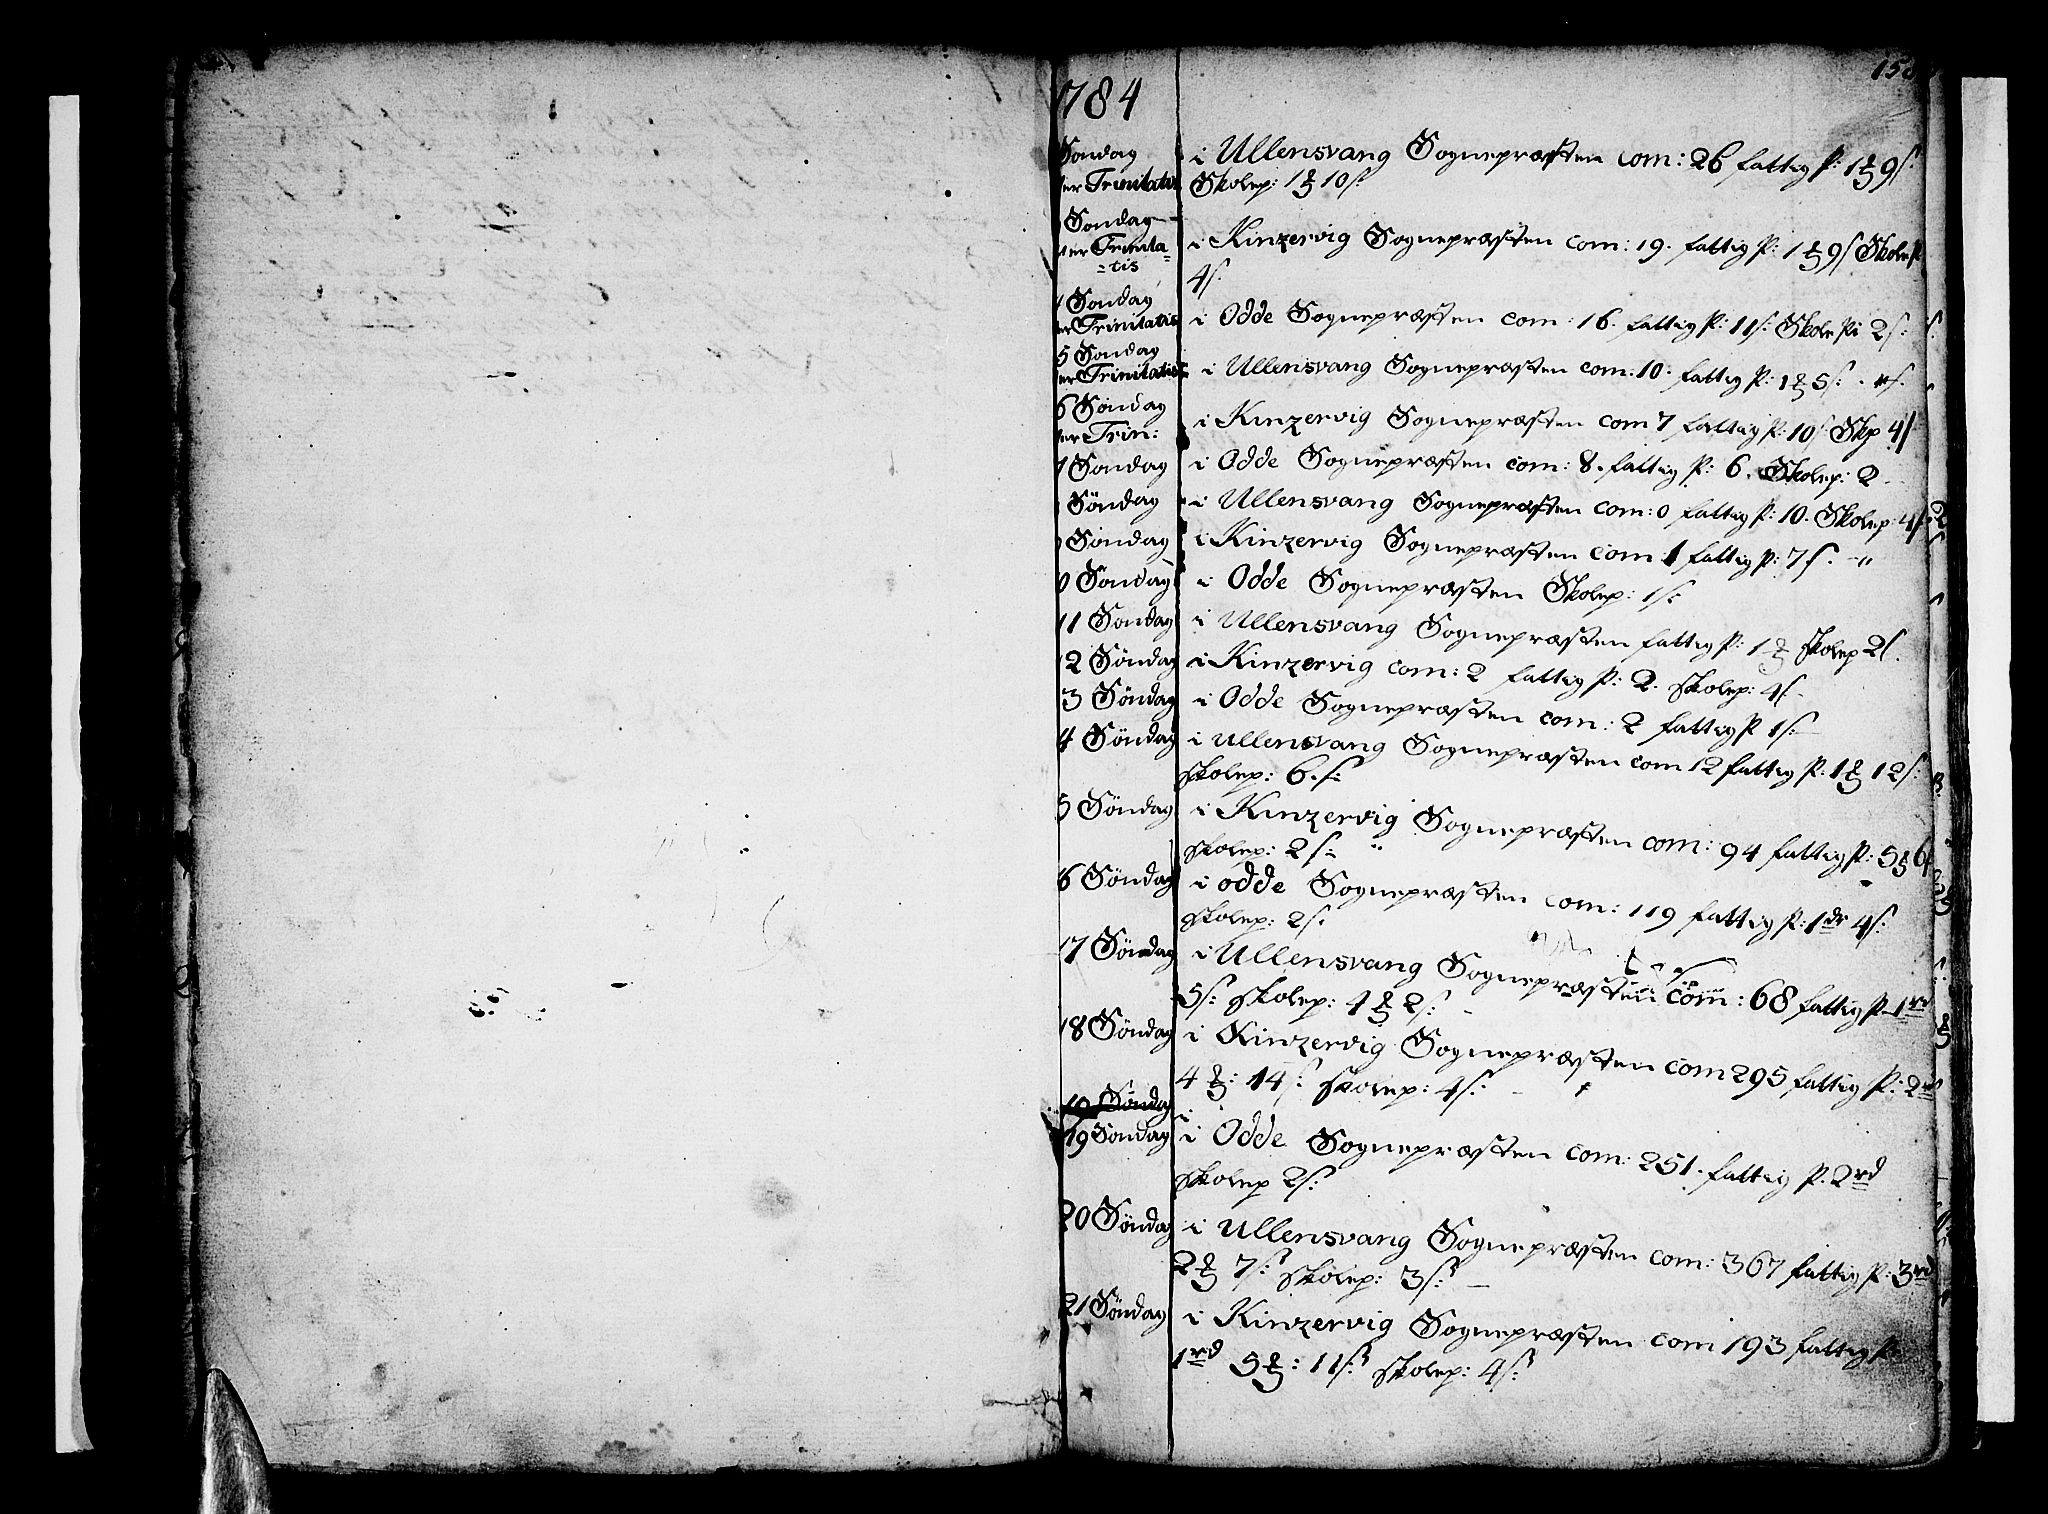 1784
Søndag
er Trinitatis
i Ullensvang Sognepræsten com: 26 fattig P: 1 ℔ 9 s:
Skolep: 1 ℔ 10 s:
Søndag
er Trinita=
=tis
i Kinzervig Sognepræsten com: 19. fattig P: 1 ℔ 9 s Skole P
4 s.
Søndag
er Trinitatis
i Odde Sognepræsten com: 16. fattig P: 11 s: Skole P: 2 s:
5 Søndag
er Trinitatis
i Ullensvang Sognepræsten com: 10. fattig P: 1 ℔ 5 s:
6 Søndag
er Trin:
i Kinzervig Sognepræsten com 7 fattig P: 10 s Skp 4 s
Søndag i Odde Sognepræsten com: 8. fattig P: 6. Skolep: 2
Søndag i Ullensvang Sognepræsten com: 0 fattig P: 10. Skolep: 4 s:
Søndag i Kinzervig Sognepræsten com 1 fattig P: 7 s.
0 Søndag i Odde Sognepræsten Skolep: 1 s:
11 Søndag i Ullensvang Sognepræsten fattig P: 1 ℔ skolep 2 s.
12 Søndag i Kinzervig com: 2 fattig P: 2. skolep: 4 s.
3 Søndag i Odde Sognepræsten com: 2 fattig P 1 s:
4 Søndag i Ullensvang Sognepræsten com 12 fattig P: 1 ℔ 12 s:
skolep: 6. s:
5 Søndag i Kinzervig Sognepræsten com: 94 fattig P: 5 ℔ 6 s
skolep: 2 s:
6 Søndag i odde Sognepræsten com: 119 fattig P: 1 dr 4 s:
skolep: 2 s.
17 Søndag i Ullensvang Sognepræsten com: 68 fattig P 1 rd
5 s: skolep: 4 ℔ 2 s:
18 Søndag i Kinzervig Sognepræsten com 295 fattig P: 2 rd
4 ℔: 14 s: skolep: 4 s:
19 Søndag
19 Søndag i Odde Sognepræsten com: 251. fattig P. 2 rd
skolep 2 s:
20 Søndag i Ullensvang Sognepræsten com: 367 fattig P: 3 rd
2 ℔ 7 s: skolep: 3 s:
21 Søndag i Kinzervig Sognepræsten com 193 fattig P:
1 rd 5 ℔: 11 s: skolep: 4 s: